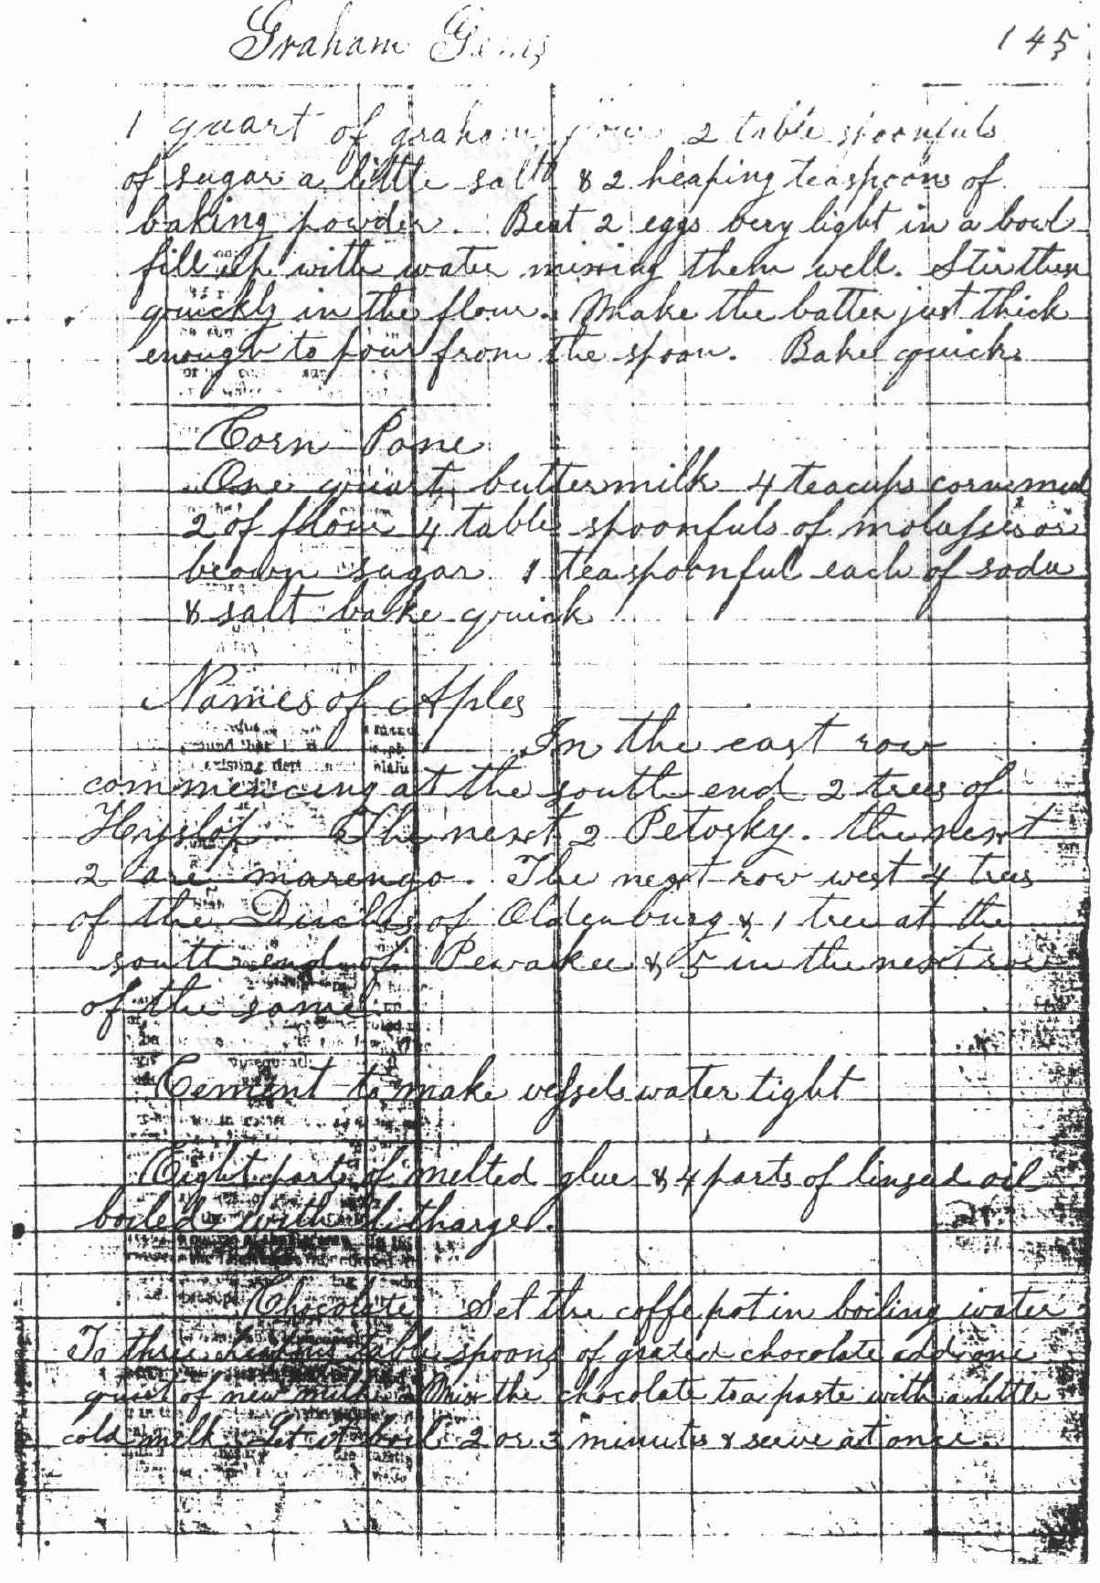 Graham Gems 145
1 quart of graham flour 2 table spoonfuls
of sugar a little salt & 2 heaping teaspoons of
baking powder. Beat 2 eggs very light in a bowl
fill up with water mixing them well. Stir then
quickly in the flour. Make the batter just thick
enough to pour from the spoon. Bake quick.
Corn Pone
One quart buttermilk 4 teacups cornmeal
2 of flour 4 table spoonfuls of molasses or
brown sugar 1 teaspoonful each of soda
& salt bake quick
Names of Aples
In the east row
commencing at the south end 2 trees of
Hyslop The next 2 Petosky. the next
2 are marengo. The next row west 4 trees
of the Duches of Oldenburg & 1 tree at the
south end of Pewaukee & 5 in the next row
of the same
Cement to make vessels water tight
Eight parts of melted glue & 4 parts of linseed oil
boiled with litharge.
Chocolate Set the coffe pot in boiling water
To three heaping table spoons of grated chocolate add one
quart of new milk Mix the chocolate to a paste with a little
cold milk Let it boil 2 or 3 minutes & serve at once.